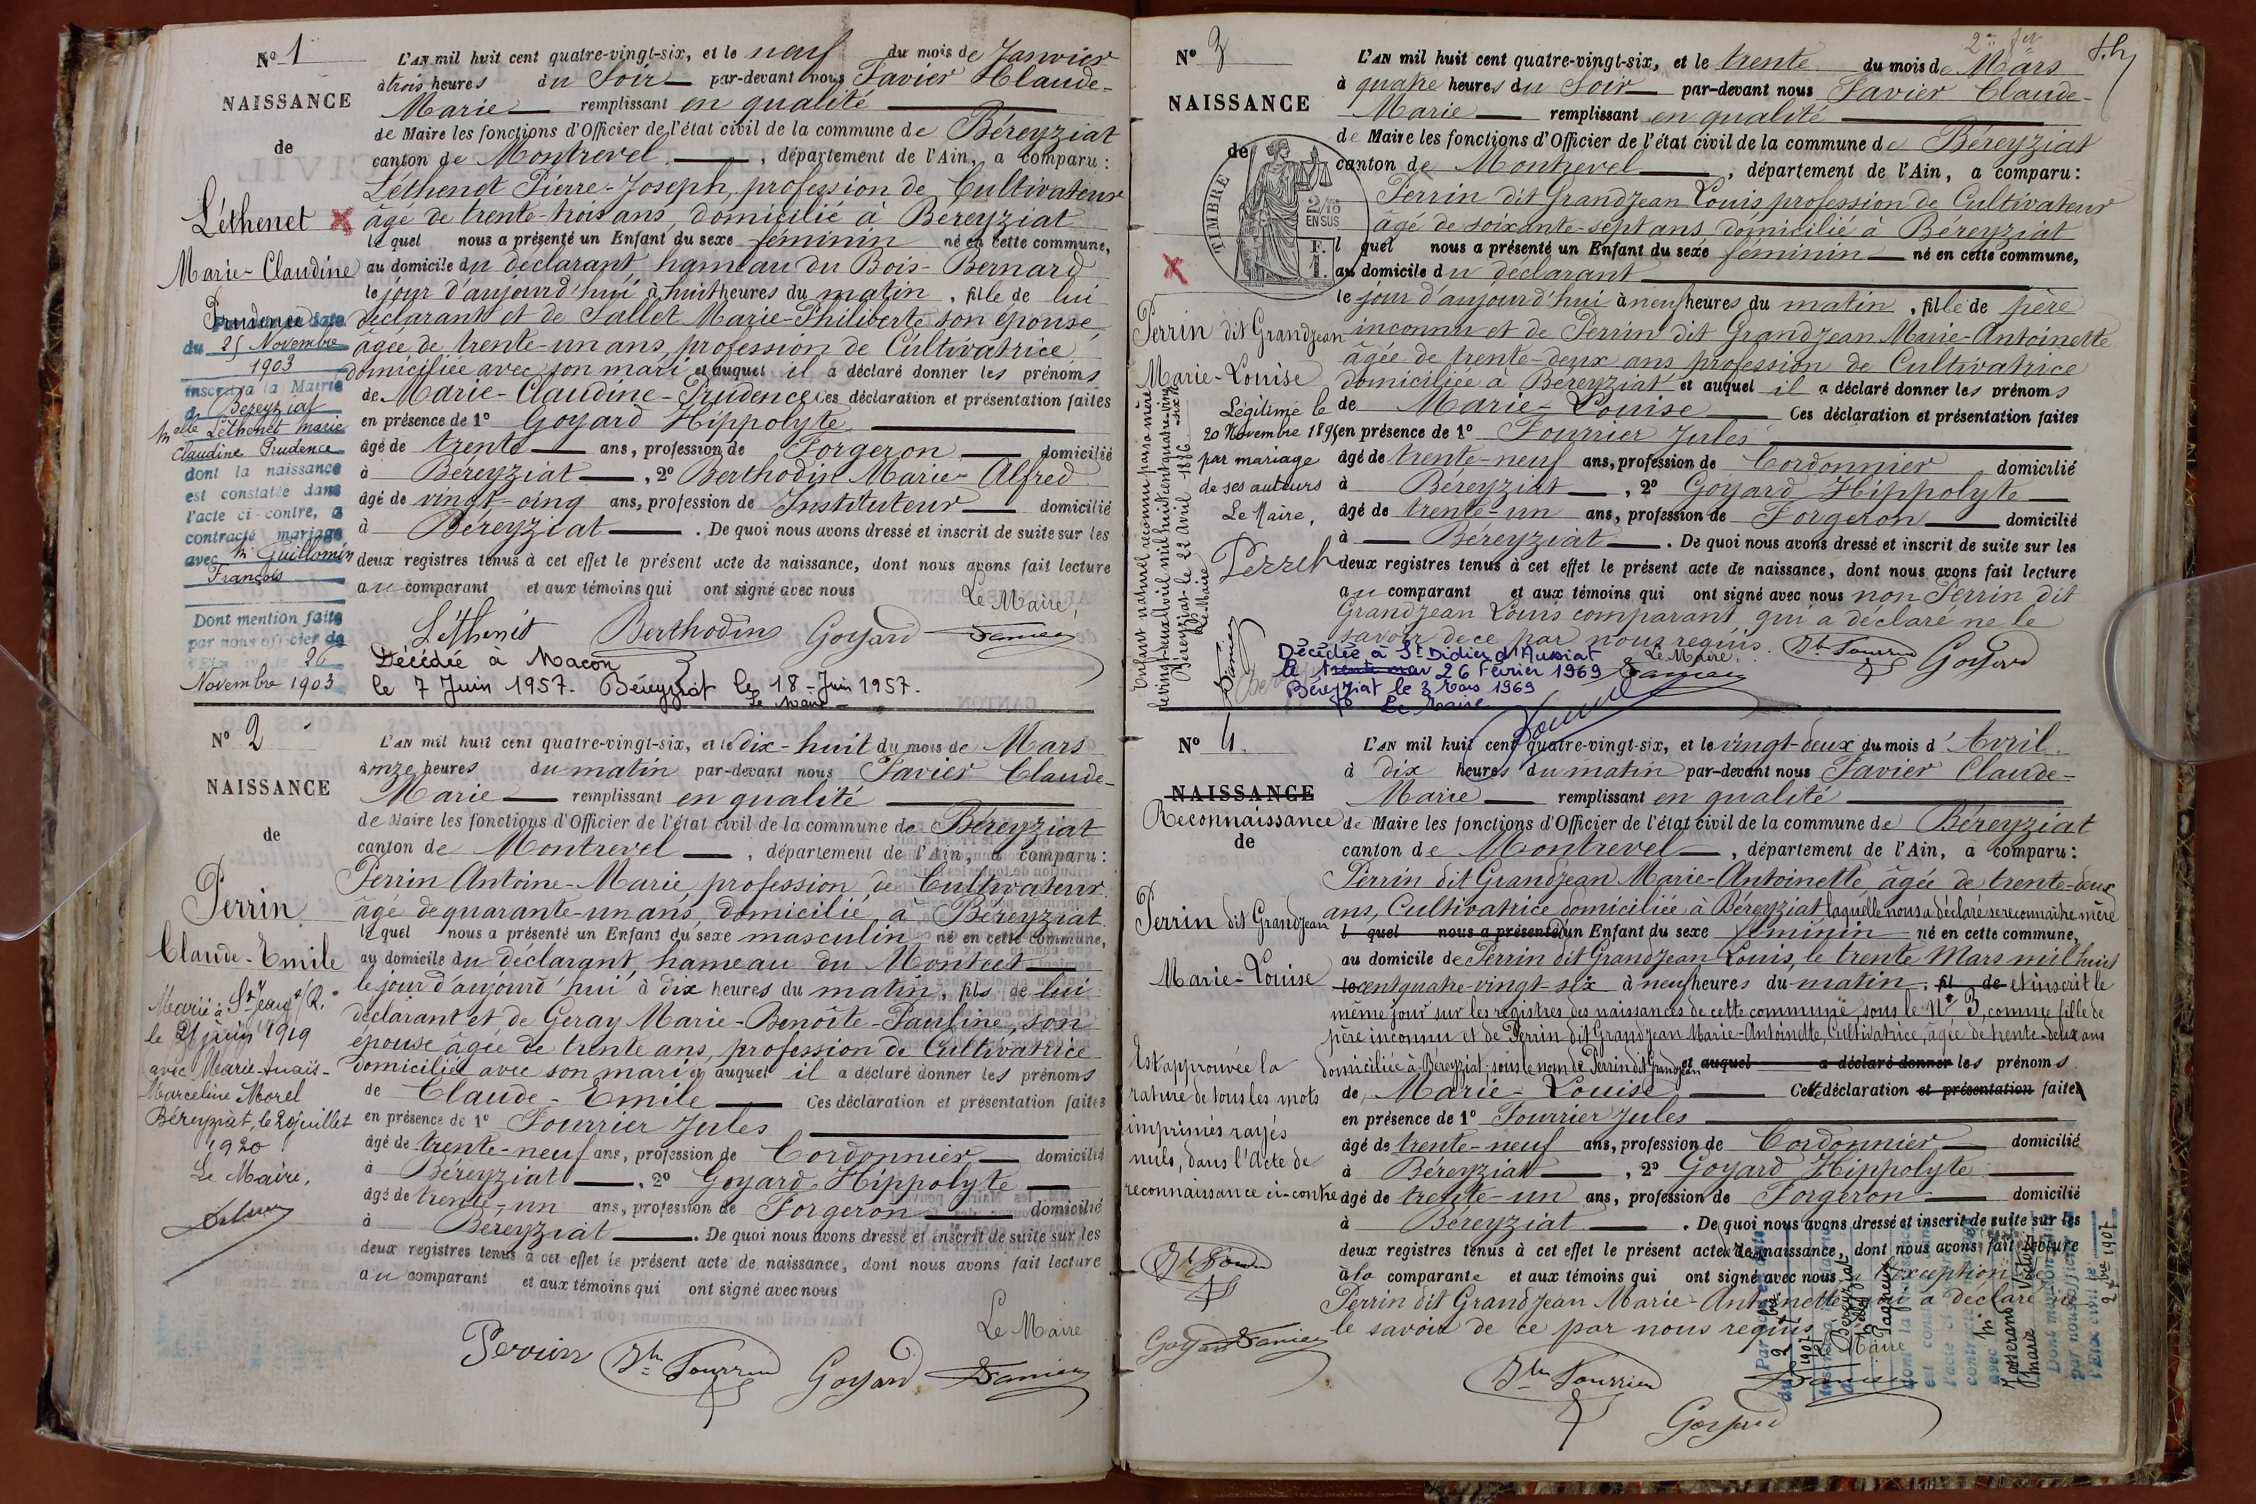 N° 1
NAISSANCE
de
Léthenet
Marie-Claudine
Prudence
Par acte en date
du 25 Novembre
1903
inscrit à la Mairie
de Béreyziat
Melle Léthenet Marie
Claudine Prudence
dont la naissance
est constatée dans
l'acte ci-contre, a
contracté mariage
avec Mr Guillomin
François
Dont mention faite
par nous officier de
26
Novembre 1903
L'AN mil huit cent quatre-vingt-six, et le neuf du mois de Janvier
à trois heures du Soir par-devant nous Favier Claude-
Marie remplissant en qualité
de Maire les fonctions d'Officier de l'état civil de la commune de Béreyziat
canton de Montrevel, département de l'Ain, a comparu:
Léthenet Pierre-Joseph, profession de Cultivateur
âgé de trente-trois ans, domicilié à Béreyziat
lequel nous a présenté un Enfant du sexe féminin né en cette commune,
au domicile du déclarant, hameau du Bois-Bernard
le jour d'aujourd'hui à huit heures du matin, fille de lui
déclarant et de Fallet Marie-Philiberte son épouse
âgée de trente-un ans, profession de Cultivatrice
domiciliée avec son mari et auquel il a déclaré donner les prénoms
de Marie-Claudine-Prudence Ces déclaration et présentation faites
en présence de 1° Goyard Hippolyte
âgé de trente ans, profession de Forgeron domicilié
à Béreyziat, 2° Berthodin Marie-Alfred
âgé de vingt-cinq ans, profession de Instituteur domicilié
à Béreyziat. De quoi nous avons dressé et inscrit de suite sur les
deux registres tenus à cet effet le présent acte de naissance, dont nous avons fait lecture
au comparant et aux témoins qui ont signé avec nous
Le Maire,
Léthenet Berthodin Goyard Favier
Décédée à Macon
le 7 Juin 1957. Béreyziat le 18-Juin 1957.
Le Maire
N° 2
NAISSANCE
de
Perrin
Claude-Emile
Marié à St Jean s/R.
le 21 juin 1919
avec Marie-Anaïs-
Marceline Morel
Béreyziat, le 20 juillet
1920
Le Maire,
L'AN mil huit cent quatre-vingt-six, et le dix-huit du mois de Mars
à onze heures du matin par-devant nous Favier Claude-
Marie remplissant en qualité
de Maire les fonctions d'Officier de l'état civil de la commune de Béreyziat
canton de Montrevel, département de l'Ain, a comparu:
Perrin Antoine-Marie, profession de Cultivateur
âgé de quarante-un ans, domicilié à Béreyziat
lequel nous a présenté un Enfant du sexe masculin né en cette commune,
au domicile du déclarant, hameau du Montcet
le jour d'aujourd'hui à dix heures du matin, fils de lui
déclarant et de Geray Marie-Benoîte-Pauline, son
épouse âgée de trente ans, profession de Cultivatrice
domiciliée avec son mari et auquel il a déclaré donner les prénoms
de Claude-Emile Ces déclaration et présentation faites
en présence de 1° Fourrier Jules
âgé de trente-neuf ans, profession de Cordonnier domicilié
à Béreyziat, 2° Goyard Hippolyte
âgé de trente-un ans, profession de Forgeron domicilié
à Béreyziat. De quoi nous avons dressé et inscrit de suite sur les
deux registres tenus à cet effet le présent acte de naissance, dont nous avons fait lecture
au comparant et aux témoins qui ont signé avec nous
Le Maire
Perrin Jles Fourrier Goyard Favier
N° 3
NAISSANCE
de
TIMBRE
2/10
EN SUS
F.
1.
Perrin dit Grandjean
Marie-Louise
Légitimé le
20 Novembre 1895
par mariage
de ses auteurs
Le Maire,
Perret
Enfant naturel reconnu par sa mère
le vingt-deux Avril mil huit cent quatre-vingt-six
Béreyziat le 22 Avril 1886
Le Maire
Favier
2e fet
L'AN mil huit cent quatre-vingt-six, et le trente du mois de Mars
à quatre heures du Soir par-devant nous Favier Claude-
Marie remplissant en qualité
de Maire les fonctions d'Officier de l'état civil de la commune de Béreyziat
canton de Montrevel, département de l'Ain, a comparu:
Perrin dit Grandjean Louis profession de Cultivateur
âgé de soixante-sept ans domicilié à Béreyziat
lequel nous a présenté un Enfant du sexe féminin né en cette commune,
au domicile du déclarant
le jour d'aujourd'hui à neuf heures du matin, fille de père
inconnu et de Perrin dit Grandjean Marie-Antoinette
âgée de trente-deux ans profession de Cultivatrice
domiciliée à Béreyziat et auquel il a déclaré donner les prénoms
de Marie-Louise Ces déclaration et présentation faites
en présence de 1° Fourrier Jules
âgé de trente-neuf ans, profession de Cordonnier domicilié
à Béreyziat, 2° Goyard Hippolyte
âgé de trente-un ans, profession de Forgeron domicilié
à Béreyziat. De quoi nous avons dressé et inscrit de suite sur les
deux registres tenus à cet effet le présent acte de naissance, dont nous avons fait lecture
au comparant et aux témoins qui ont signé avec nous non Perrin dit
Grandjean Louis comparant, qui a déclaré ne le
savoir de ce par nous requis. Jles Fourrier Goyard
Le Maire,
Favier
Décédée à St Didier d'Aussiat
le 26 Février 1969
Béreyziat le 3 Mars 1969
Le Maire
N° 4
NAISSANCE
Reconnaissance
de
Perrin dit Grandjean
Marie-Louise
Est approuvée la
rature de tous les mots
imprimés rayés
nuls, dans l'Acte de
reconnaissance ci-contre
Jles Fourrier
Goyard Favier
L'AN mil huit cent quatre-vingt-six, et le vingt-deux du mois d'Avril
à dix heures du matin par-devant nous Favier Claude-
Marie remplissant en qualité
de Maire les fonctions d'Officier de l'état civil de la commune de Béreyziat
canton de Montrevel, département de l'Ain, a comparu:
Perrin dit Grandjean Marie-Antoinette, âgée de trente-deux
ans, Cultivatrice domiciliée à Béreyziat laquelle nous a déclaré se reconnaître mère
l quel nous a présenté d'un Enfant du sexe féminin né en cette commune,
au domicile de Perrin dit Grandjean Louis, le trente Mars mil huit
le cent quatre-vingt-six à neuf heures du matin, fil de et inscrit le
même jour sur les registres des naissances de cette commune, sous le N° 3, comme fille de
père inconnu et de Perrin dit Grandjean Marie-Antoinette, Cultivatrice, âgée de trente-deux ans
domiciliée à Béreyziat, sous le nom de Perrin dit Grandjean et auquel a déclaré donner les prénoms
de Marie-Louise Cette déclaration et présentation faite
en présence de 1° Fourrier Jules
âgé de trente-neuf ans, profession de Cordonnier domicilié
à Béreyziat, 2° Goyard Hippolyte
âgé de trente-un ans, profession de Forgeron domicilié
à Béreyziat. De quoi nous avons dressé et inscrit de suite sur les
deux registres tenus à cet effet le présent acte de naissance, dont nous avons fait lecture
à la comparante et aux témoins qui ont signé avec nous à l'exception de
Perrin dit Grandjean Marie-Antoinette qui a déclaré ne
le savoir de ce par nous requis.
Le Maire
Jles Fourrier Favier
Goyard
Par acte en date
du 2 9bre
1907
inscrit à la Mairie
de Béreyziat
Melle Pagneux
dont la naissance
est constatée dans
l'acte ci-contre a
contracté mariage
avec Mr
Josserand
Marie Victor
Dont mention faite
par nous officier de
l'Etat civil le
2 9bre 1907